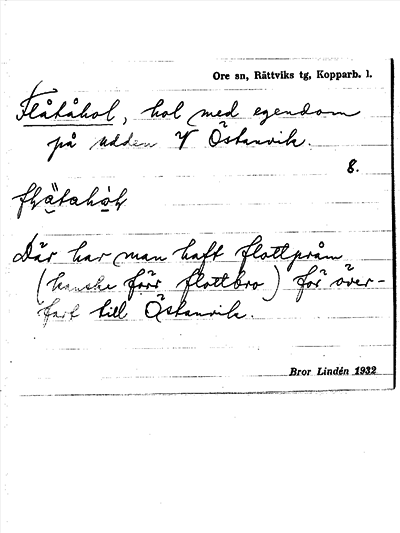 Ore sn, Rättviks tg, Kopparb. l.
Flåtåhol, hol med egendom
på udden V Östanvik.
8.
Där har man haft flottpråm
(kanske förr flottbro) för över-
fart till Östanvik.
Bror Lindén 1932